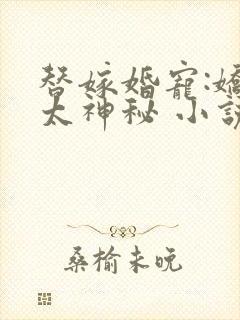 替嫁婚寵:嬌
太神秘 小説
桑榆未晚